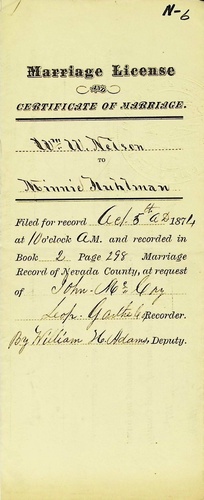 N-6
Marriage License
AND
CERTIFICATE OF MARRIAGE.
Wm W. Nelson
TO
Minnie Kuhlman
Filed for record Oct. 5th A.D. 1874
at 10 o'clock A.M. and recorded in
Book 2 Page 298 Marriage
Record of Nevada County, at request
of John Mc Coy
Leop. Garthe Recorder.
By William H. Adams, Deputy.